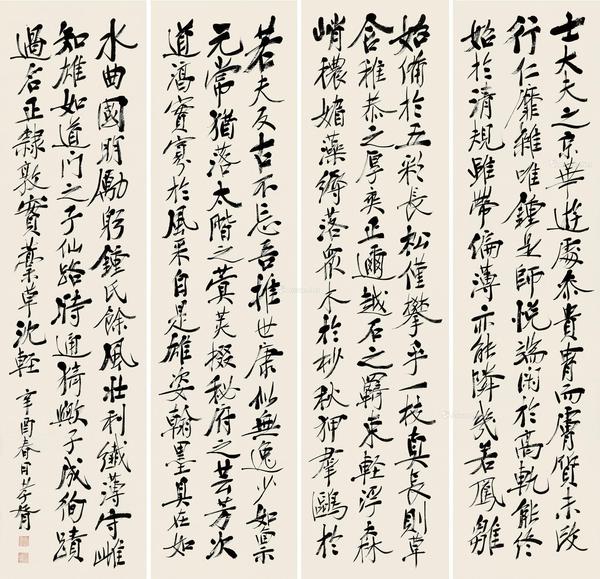 士大夫之京華遊處忝貴胄而膚質未改
行仁靡雜唯鍾是師悅端閑於高軌能終
始於清規雖帶偏薄亦能隣幾若鳳雛
始備於五彩長松僅攀乎一枝真長則草
含稚恭之厚爽正邇越石之羈束輕浮森
峭穠媚藻縟落眾木於杪秋狎羣鷗於
若夫反古不忘吾推世康似無逸少如稟
元常猶落太階之蓂莢掇秘府之芸芳次
道鴻寶寡於風采自是雄姿翰墨具在如
水曲國明勵躬鍾氏餘風壯利纖薄守雌
知雄如道門之子仙路時通猗歟子成徇蹟
過名正隸敦實藁草沈輕
辛酉春日